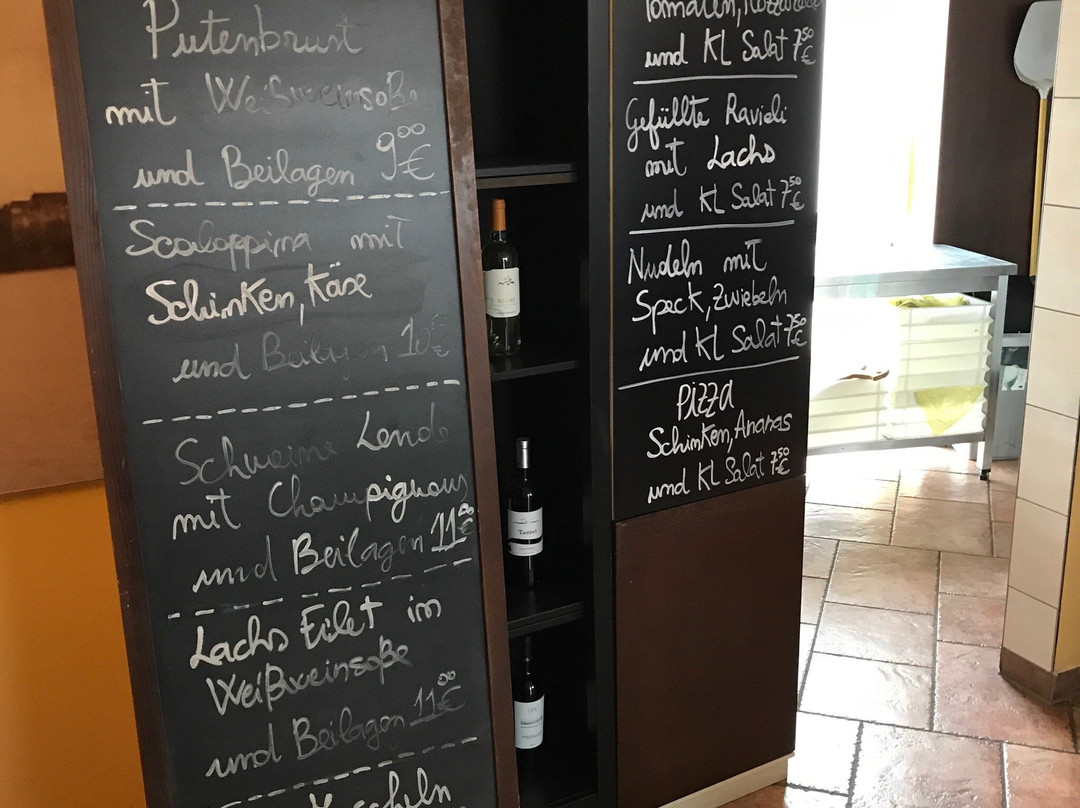 Putenbrust
mit Weißweinsoße
und Beilagen 9⁰⁰ €
Scaloppina mit
Schinken, Käse
und Beilagen 10 €
Schweine Lende
mit Champignons
und Beilagen 11⁰⁰ €
Lachs Filet im
Weißweinsoße
und Beilagen 11⁰⁰ €
Tomaten,
und KL Salat 7⁵⁰ €
Gefüllte Ravioli
mit Lachs
und KL Salat 7⁵⁰ €
Nudeln mit
Speck, Zwiebeln
und KL Salat 7⁵⁰ €
Pizza
Schinken, Ananas
und KL Salat 7⁵⁰ €